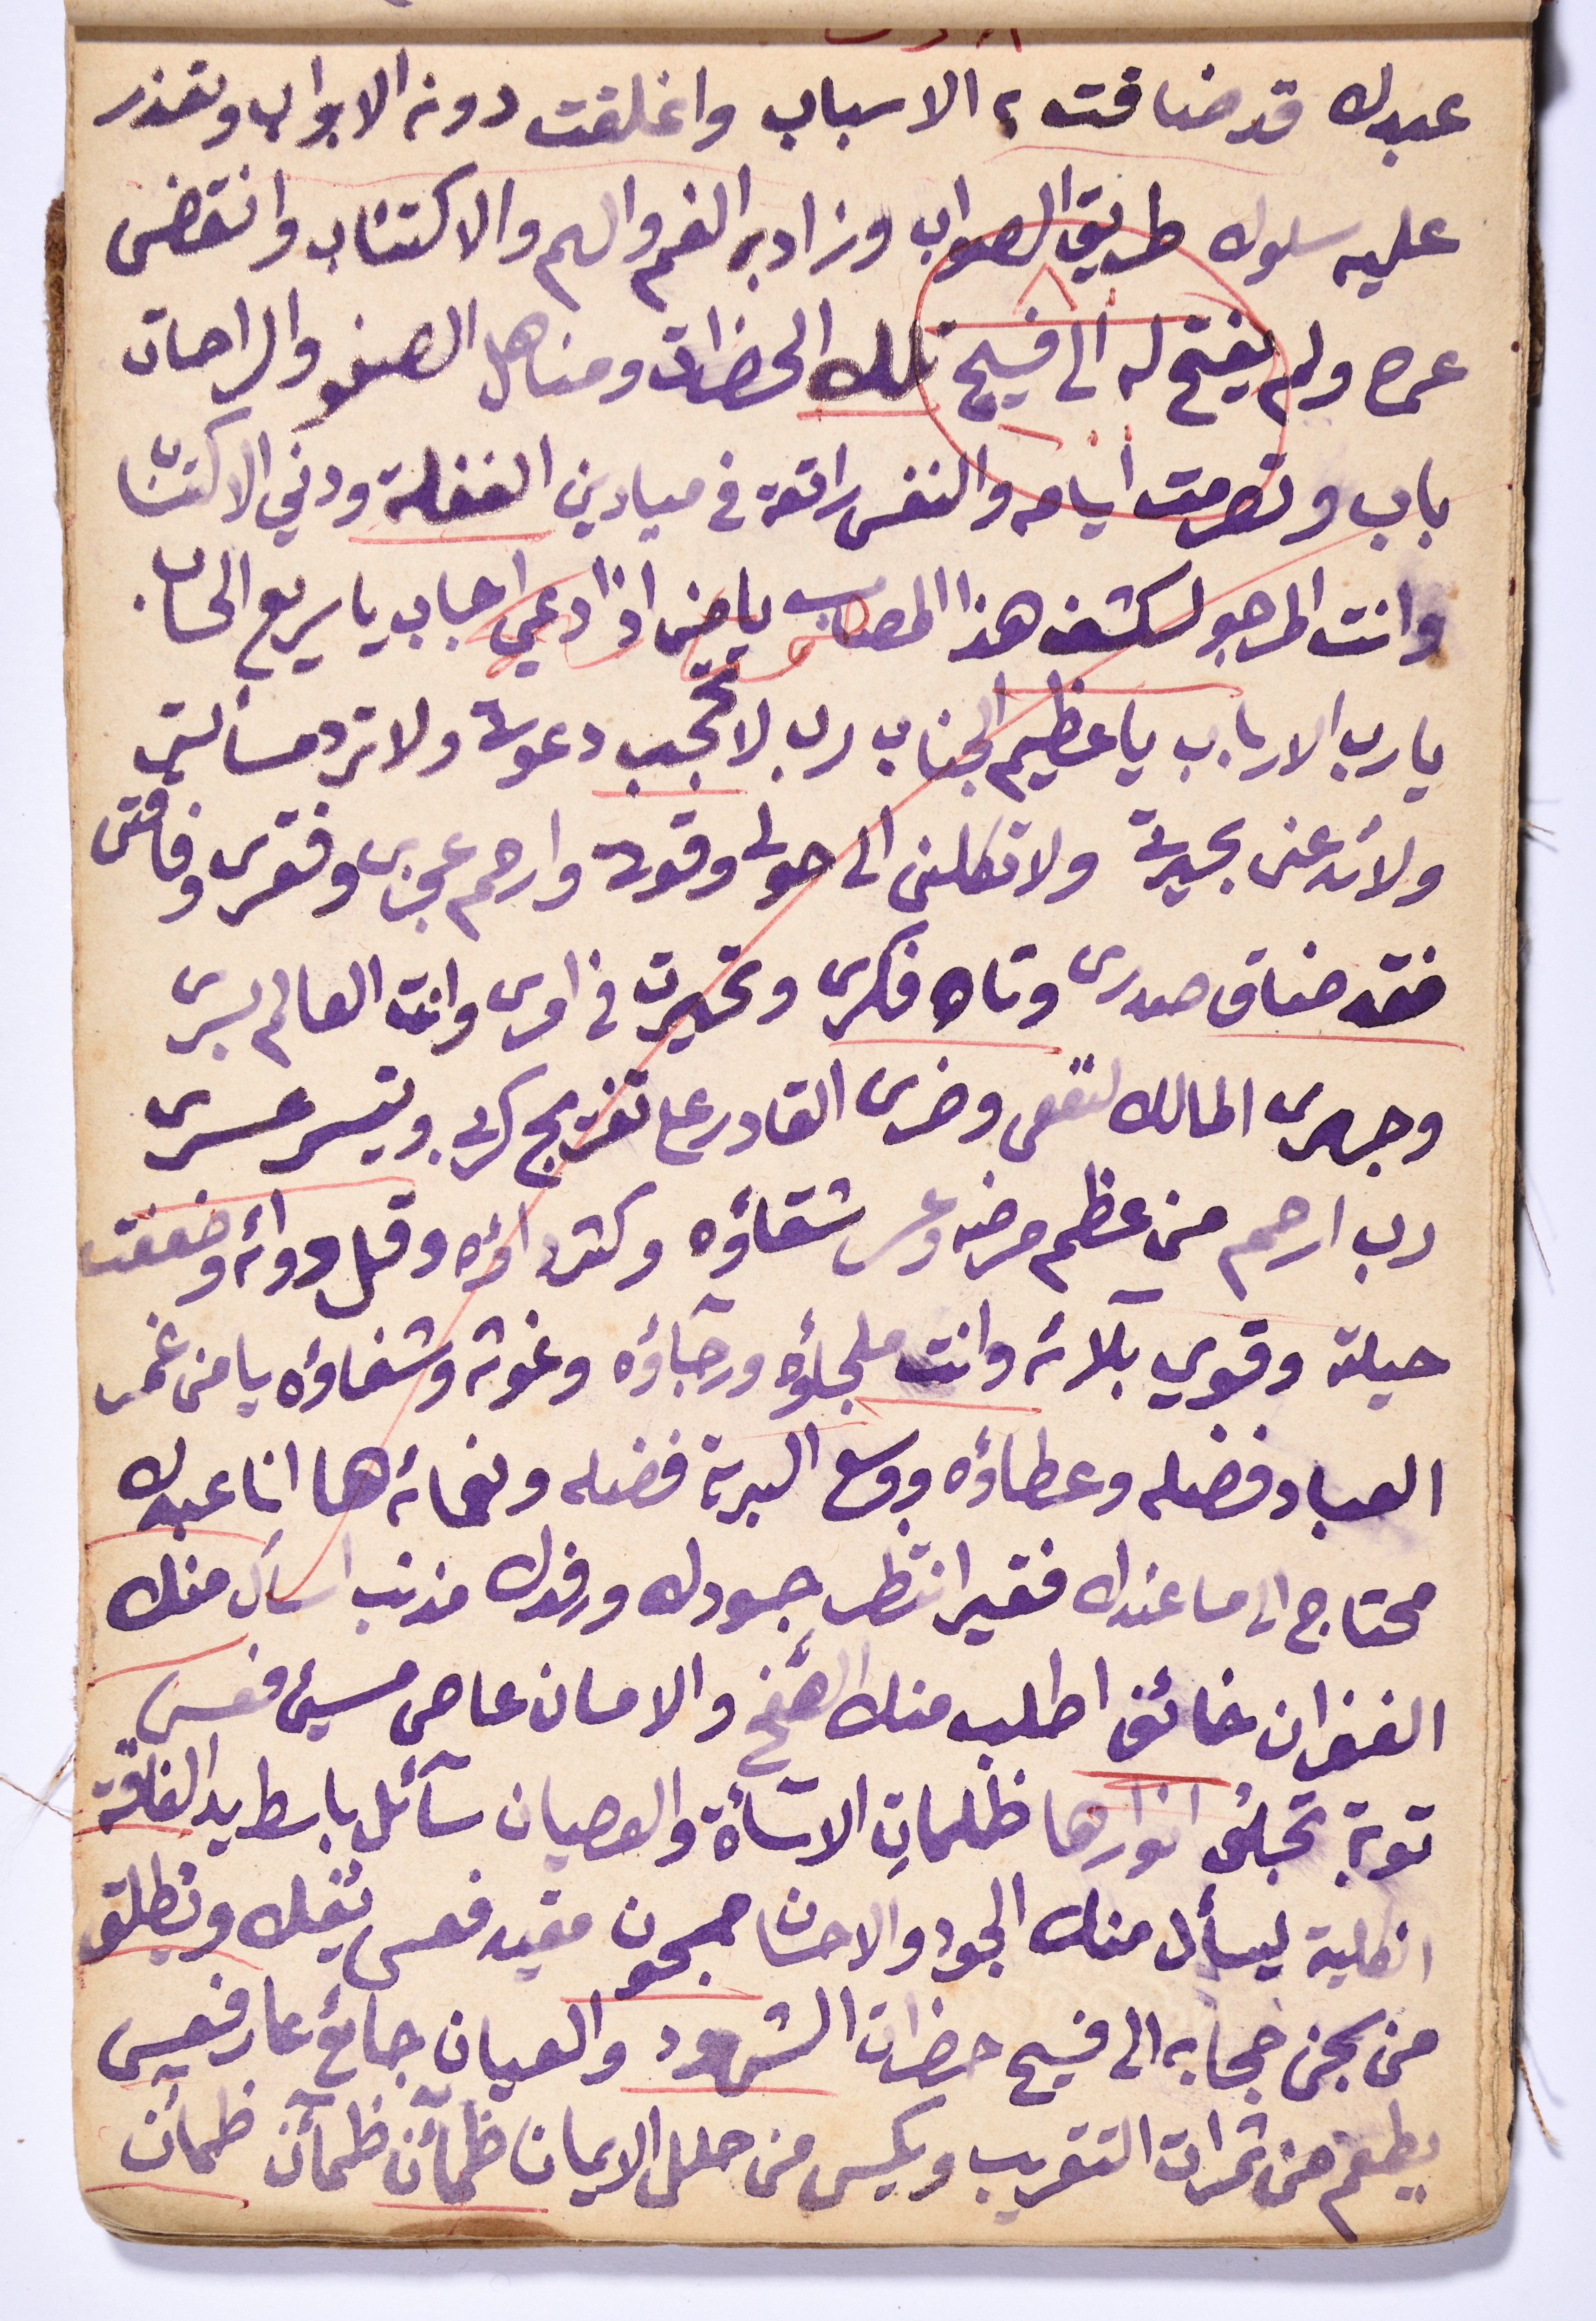 عبدك قد ضاقت به الاسباب واغلقت دونه الابواب وتعذر
عليه سلوك طريق الصواب وزاد به الغم والهم والاكتئاب وانقضى
عمره ولم يفتح له الى فسيح تلك الحضرات ومناهل الصفو والراحات
باب وتصرمت أيامه والنفس راتعة في ميادين الغفلة ودني الاكتساب
وانت المرجو لكشف هذا المصاب يامن اذا دعي اجاب ياسريع الحساب
يارب الارباب ياعظيم الجناب رب لا تحجب دعوتي ولا ترد مسألتي
ولا تدعني بحيرتي ولا تكلني الى حولي وقوتي وارحم عجزي وفقري وفاقتي
فقد ضاق صدري وتاه فكري وتحيرت في امري وانت العالم بسري
وجهري المالك لنفعي وضري القادر على تفريج كربي وتيسر عسري
رب ارحم من عظم مرضه وعسر شقاؤه وكثر داؤه وقل دوائه وضعفت
حيلته وقوي بلآئه وانت ملجاؤه ورجآؤه وغوثه وشفاؤه يامن غمر
العباد فضله وعطاؤه ووسع البرية فضله ونعمائه ها انا عبدك
محتاج الى ما عندك فقير انتظر جودك ورفدك مذنب اسأل منك
الغفران خائف اطلب منك الصفح والامان عاص مسيئ فعسى
توبة تجلى انوارها ظلماتِ الاسآءة والعصيان سآئل باسط يد الفاقة
الكلية يسأل منك الجود والاحسان مسجون مقيد فعسى يفك ويطلق
من سجن حجابه الى فسيح حضرات الشهود والعيان جائع عار فعسى
يطعم من ثمرات التقريب ويكسى من حلل الايمان ظمآن ظمآن ظمآن